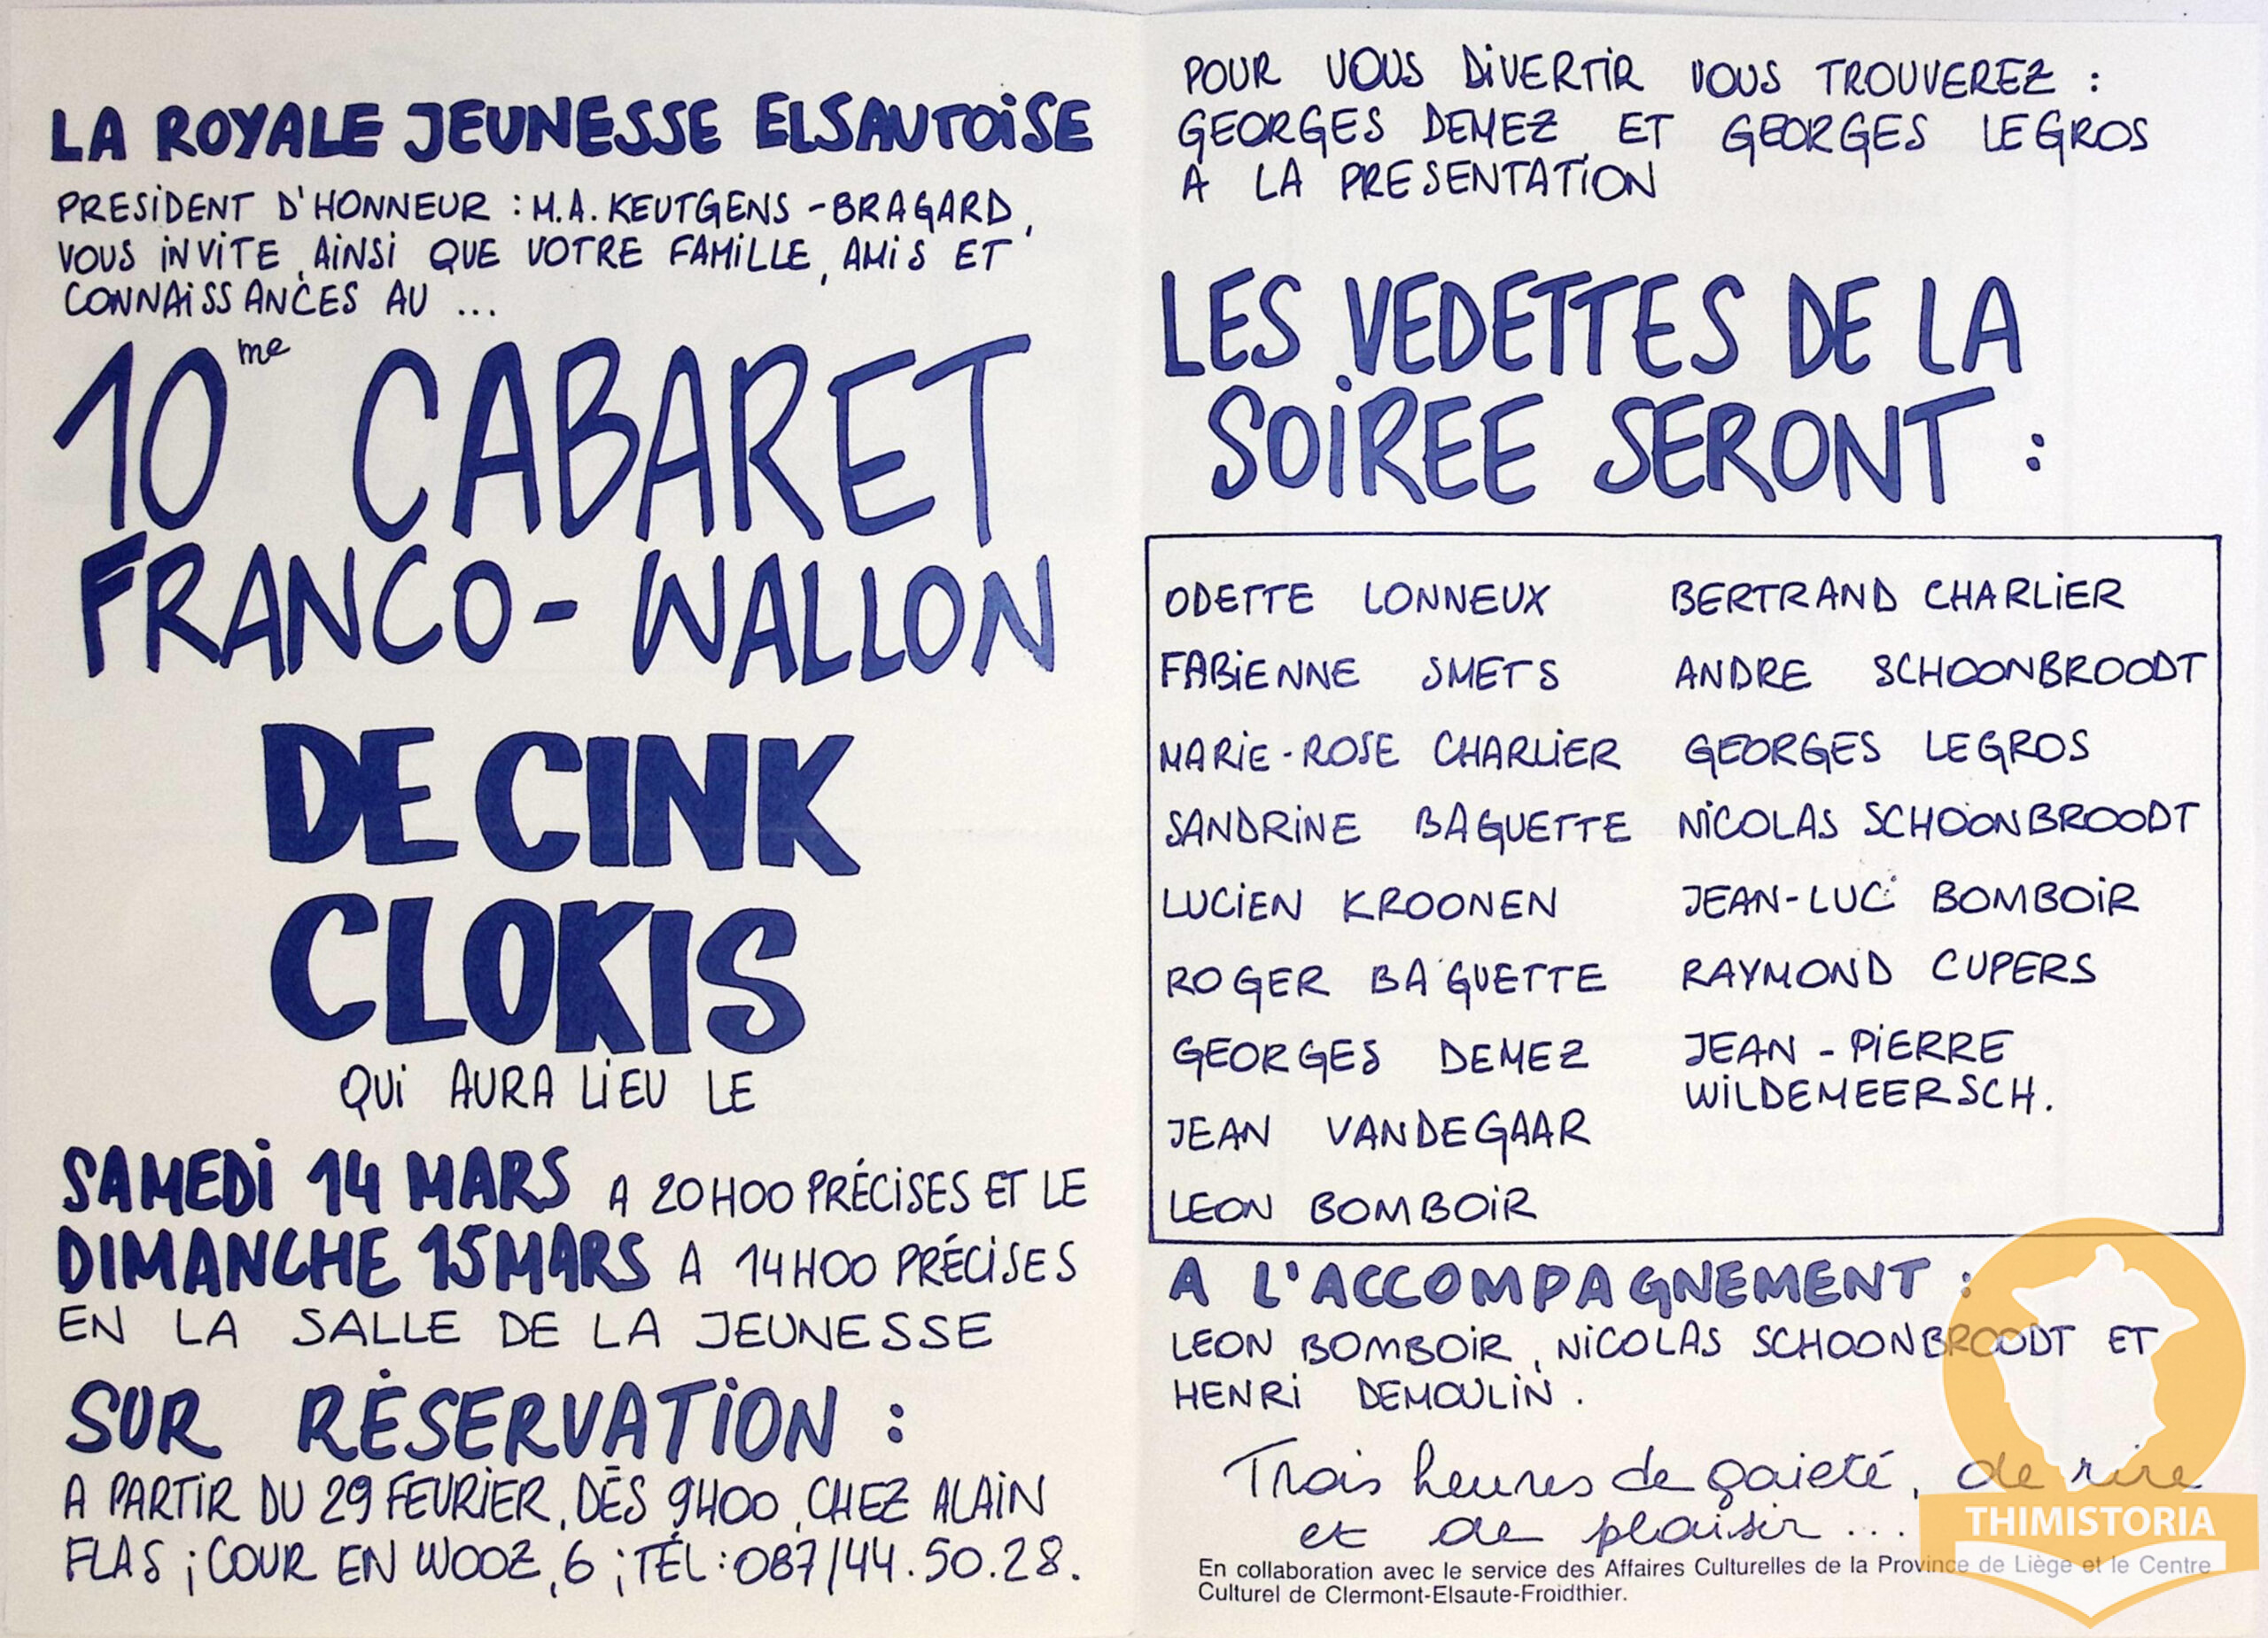 LA ROYALE JEUNESSE ELSAUTOISE
PRESIDENT D'HONNEUR : M.A. KEUTGENS - BRAGARD,
VOUS INVITE, AINSI QUE VOTRE FAMILLE, AMIS ET
CONNAISSANCES AU ...
10me CABARET
FRANCO-WALLON
DE CINK
CLOKIS
QUI AURA LIEU LE
SAMEDI 14 MARS A 20H00 PRÉCISES ET LE
DIMANCHE 15 MARS A 14H00 PRÉCISES
EN LA SALLE DE LA JEUNESSE
SUR RÉSERVATION :
A PARTIR DU 29 FEVRIER, DÈS 9H00, CHEZ ALAIN
FLAS ; COUR EN WOOZ, 6 ; TÉL : 087/44.50.28.
POUR VOUS DIVERTIR VOUS TROUVEREZ :
GEORGES DEMEZ ET GEORGES LEGROS
A LA PRESENTATION
LES VEDETTES DE LA
SOIREE SERONT :
ODETTE LONNEUX
FABIENNE SMETS
MARIE-ROSE CHARLIER
SANDRINE BAGUETTE
LUCIEN KROONEN
ROGER BAGUETTE
GEORGES DEMEZ
JEAN VANDEGAAR
LEON BOMBOIR
BERTRAND CHARLIER
ANDRE SCHOONBROODT
GEORGES LEGROS
NICOLAS SCHOONBROODT
JEAN-LUC BOMBOIR
RAYMOND CUPERS
JEAN-PIERRE
WILDEMEERSCH.
A L'ACCOMPAGNEMENT :
LEON BOMBOIR, NICOLAS SCHOONBROODT ET
HENRI DEMOULIN.
Trois heures de gaieté, de rire
et de plaisir ...
En collaboration avec le service des Affaires Culturelles de la Province de Liège et le Centre
Culturel de Clermont-Elsaute-Froidthier.
THIMISTORIA